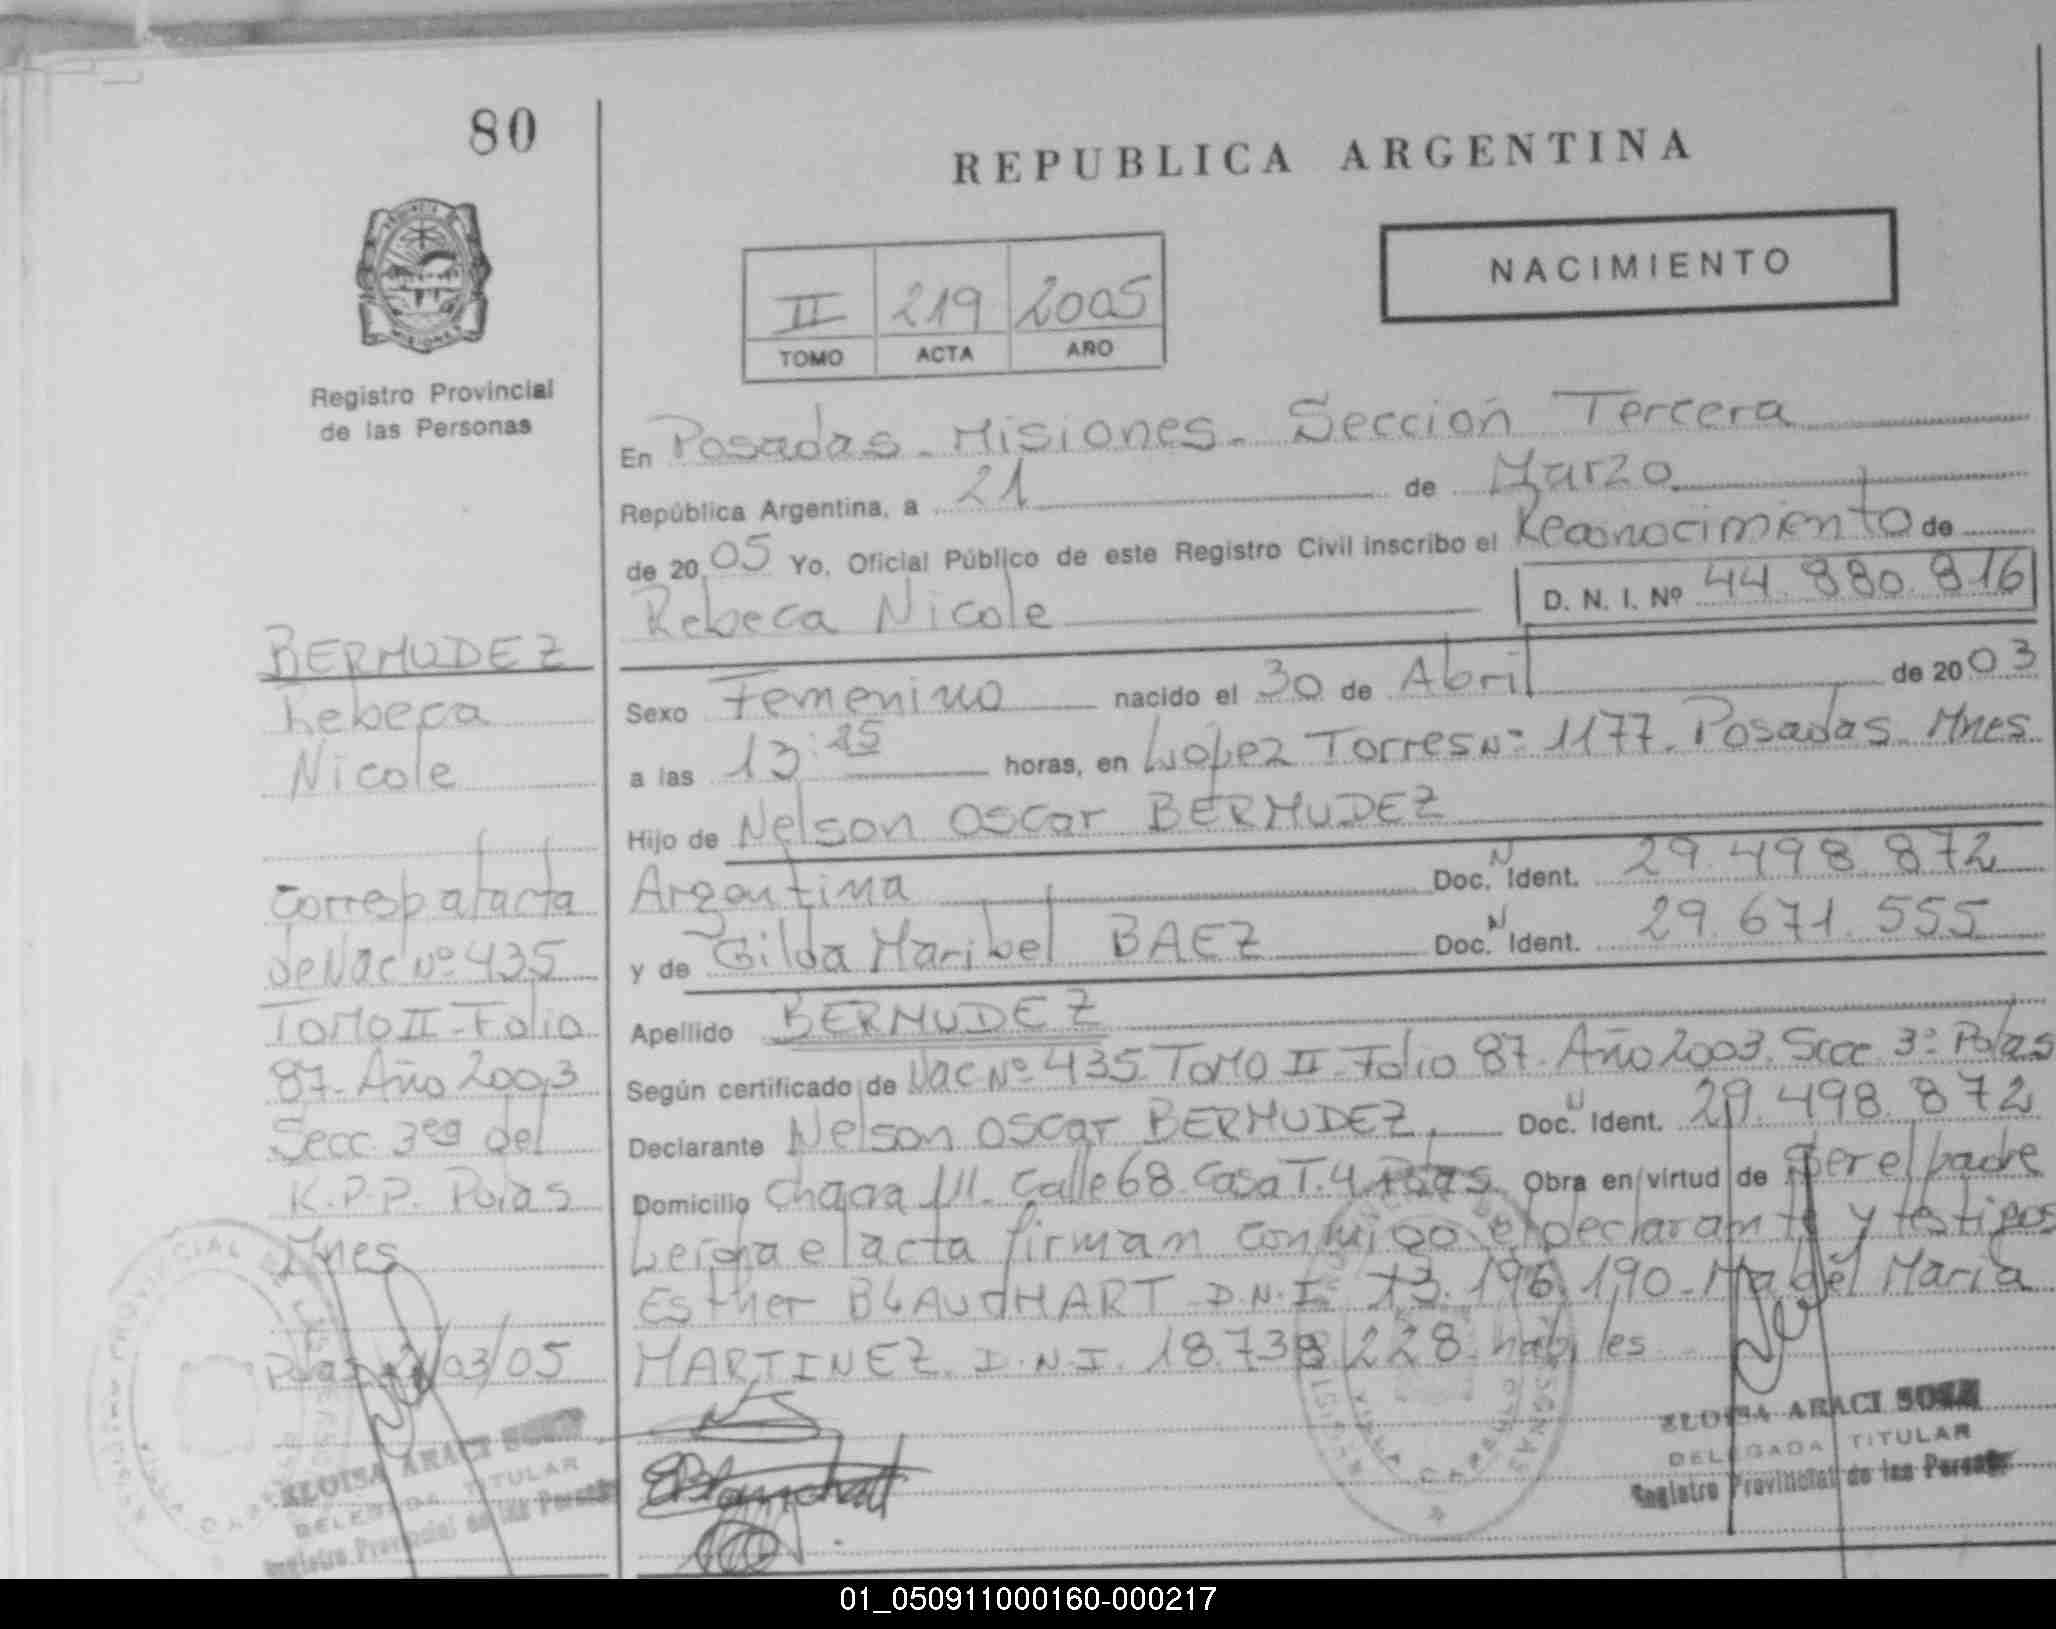 80
REPUBLICA ARGENTINA
NACIMIENTO
II 219 2005
TOMO ACTA AÑO
Registro Provincial
de las Personas
En Posadas - Misiones - Sección Tercera
República Argentina, a 21 de Marzo
de 2005 Yo, Oficial Público de este Registro Civil inscribo el Reconocimiento de
Rebeca Nicole D. N. I. Nº 44.880.816
Sexo Femenino nacido el 30 de Abril de 2003
a las 13:25 horas, en López Torres Nº 1177 - Posadas - Mnes
Hijo de Nelson Oscar BERMUDEZ
Argentina Doc. N Ident. 29.498.872
y de Gilda Maribel BAEZ Doc. N Ident. 29.671.555
Apellido BERMUDEZ
Según certificado de Nac Nº 435 Tomo II - Folio 87 - Año 2003. Secc 3ª Pdas
Declarante Nelson Oscar BERMUDEZ Doc. N Ident. 29.498.872
Domicilio Chacra 111 - Calle 68 - Casa T.4 Pdas Obra en virtud de Ser el padre
Leida el acta firman conmigo el declarante y testigos
Esther D.N.I. 13.196.190 - Mabel Maria
MARTINEZ D.N.I. 18.738.228 habiles
BERMUDEZ
Rebeca
Nicole
Corresp al acta
de Nac Nº 435
Tomo II - Folio
87 - Año 2003
Secc 3era del
R.P.P. Pdas
Mnes
Pdas 21/03/05
ELOISA ARACI
DELEGADA TITULAR
Registro Provincial de las Personas
ELOISA ARACI
DELEGADA TITULAR
Registro Provincial de las Personas
01_050911000160-000217